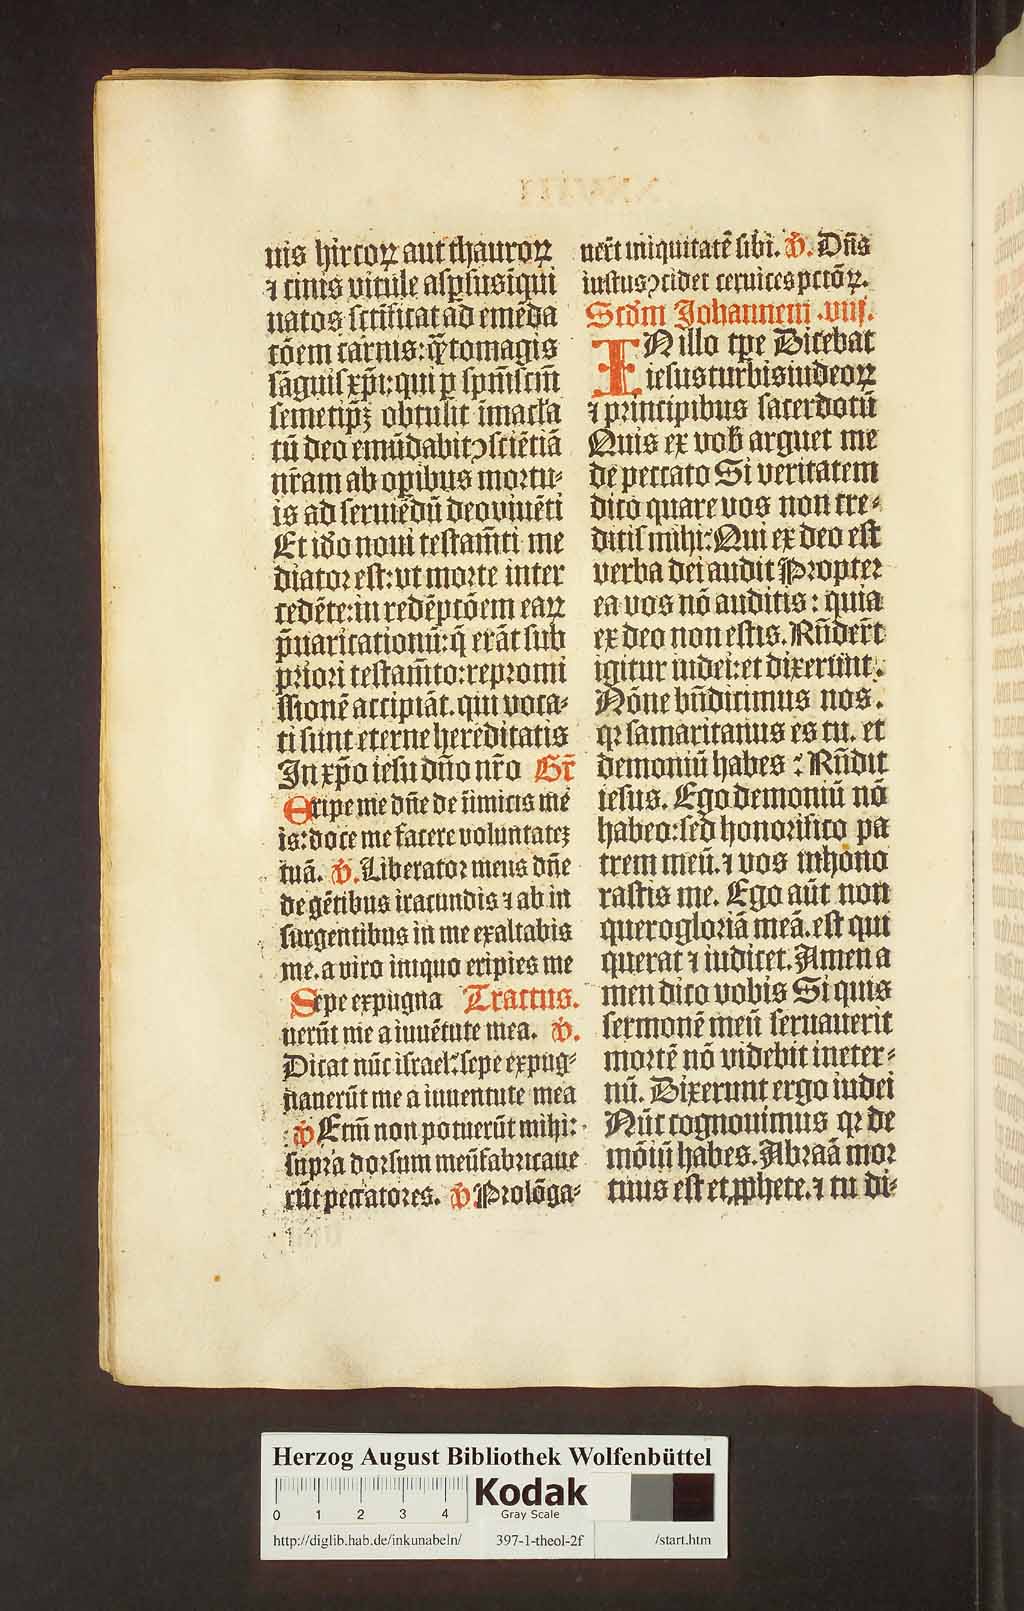 nis hircoꝝ aut thauroꝝ
⁊ cinis vitule aspsusīqui
natos sctīficat ad emēda
cōem carnis: q̄tomagis
sāguis xp̄i: qui p sp̄mscm̄
semetipꝫ obtulit īmacl̄a
tū deo emūdabitↄsciētiā
nr̄am ab opibus mortu⸗
is ad seruiēdū deoviuēti
Et iđo noui testam̄ti me
diator est: vt morte inter
cedēte: in redēptōem eaꝝ
p̄uaricationū: q̄ erāt sub
priori testam̄to: repromi
ssionē accipiāt. qui voca⸗
ti sunt eterne hereditatis
In xp̄o iesu dn̄o nr̄o Gr̄
Eripe me dn̄e de īimicis me
is: doce me facere voluntateꝫ
tuā. ℣. Liberator meus dn̄e
de gētibus iracundis ⁊ ab in
surgentibus in me exaltabis
me. a viro iniquo eripies me
Sepe expugna Tractus.
uerūt me a iuuētute mea. ℣.
Dicat nūc israel: sepe expug⸗
nauerūt me a iuuentute mea
℣ Etm̄ non potuerūt mihi:
supra dorsum meū fabricaue
rūt peccatores. ℣ Prolōga⸗
uer̄t iniquitatē sibi. ℣. Dn̄s
iustusↄcidet ceruices pctōꝝ.
Scđm Johannem .viij.
IN illo tp̄e Dicebat
iesus turbis iudeoꝝ
⁊ principibus sacerdotū
Quis ex vob̄ arguet me
de peccato Si veritatem
dico quare vos non cre⸗
ditis mihi: Qui ex deo est
verba dei audit Propter
ea vos nō auditis: quia
ex deo non estis. Rn̄der̄t
igitur iudei: et dixerunt.
Nōne bn̄dicimus nos.
qꝛ samaritanus es tu. et
demoniū habes: Rn̄dit
iesus. Ego demoniū nō
habeo: sed honorifico pa
trem meū. ⁊ vos inhono
rastis me. Ego aūt non
quero gloriā meā. est qui
querat ⁊ iudicet. Amen a
men dico vobis Si quis
sermonē meū seruauerit
mortē nō videbit in eter⸗
nū. Dixerunt ergo iudei
Nūc cognouimus qꝛ de
mōiū habes. Abraā mor
tuus est et ꝓphete. ⁊ tu di⸗
Herzog August Bibliothek Wolfenbüttel
0 1 2 3 4
Kodak
Gray Scale
http://diglib.hab.de/inkunabeln/ 397-1-theol-2f /start.htm